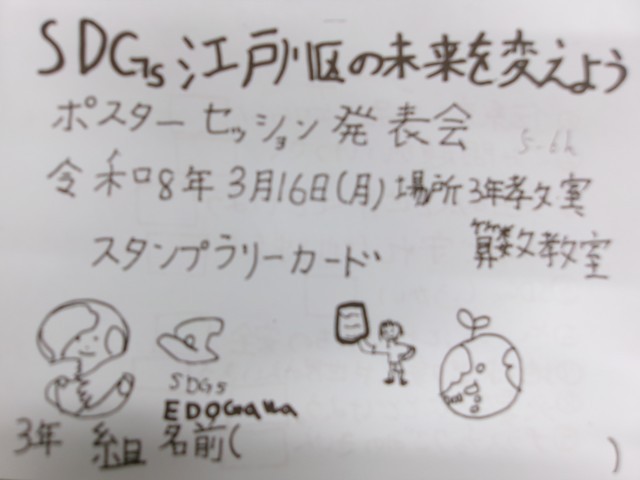 SDGs 江戸川区の未来を変えよう
ポスターセッション発表会
令和8年3月16日(月) 場所 3年教室
算数教室
スタンプラリーカード
SDGs
EDOGawa
3年 組 名前( )